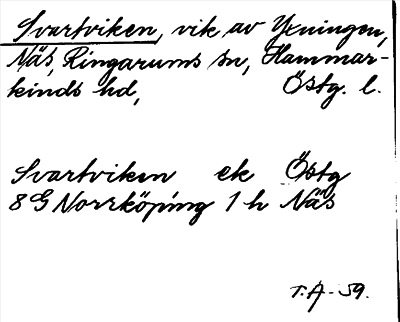 Svartviken, vik av Yxningen,
Näs, Ringarums sn, Hammar-
kinds hd, Östg. l.
Svartviken ek Östg
8G Norrköping 1 h Näs
T.A - 59.